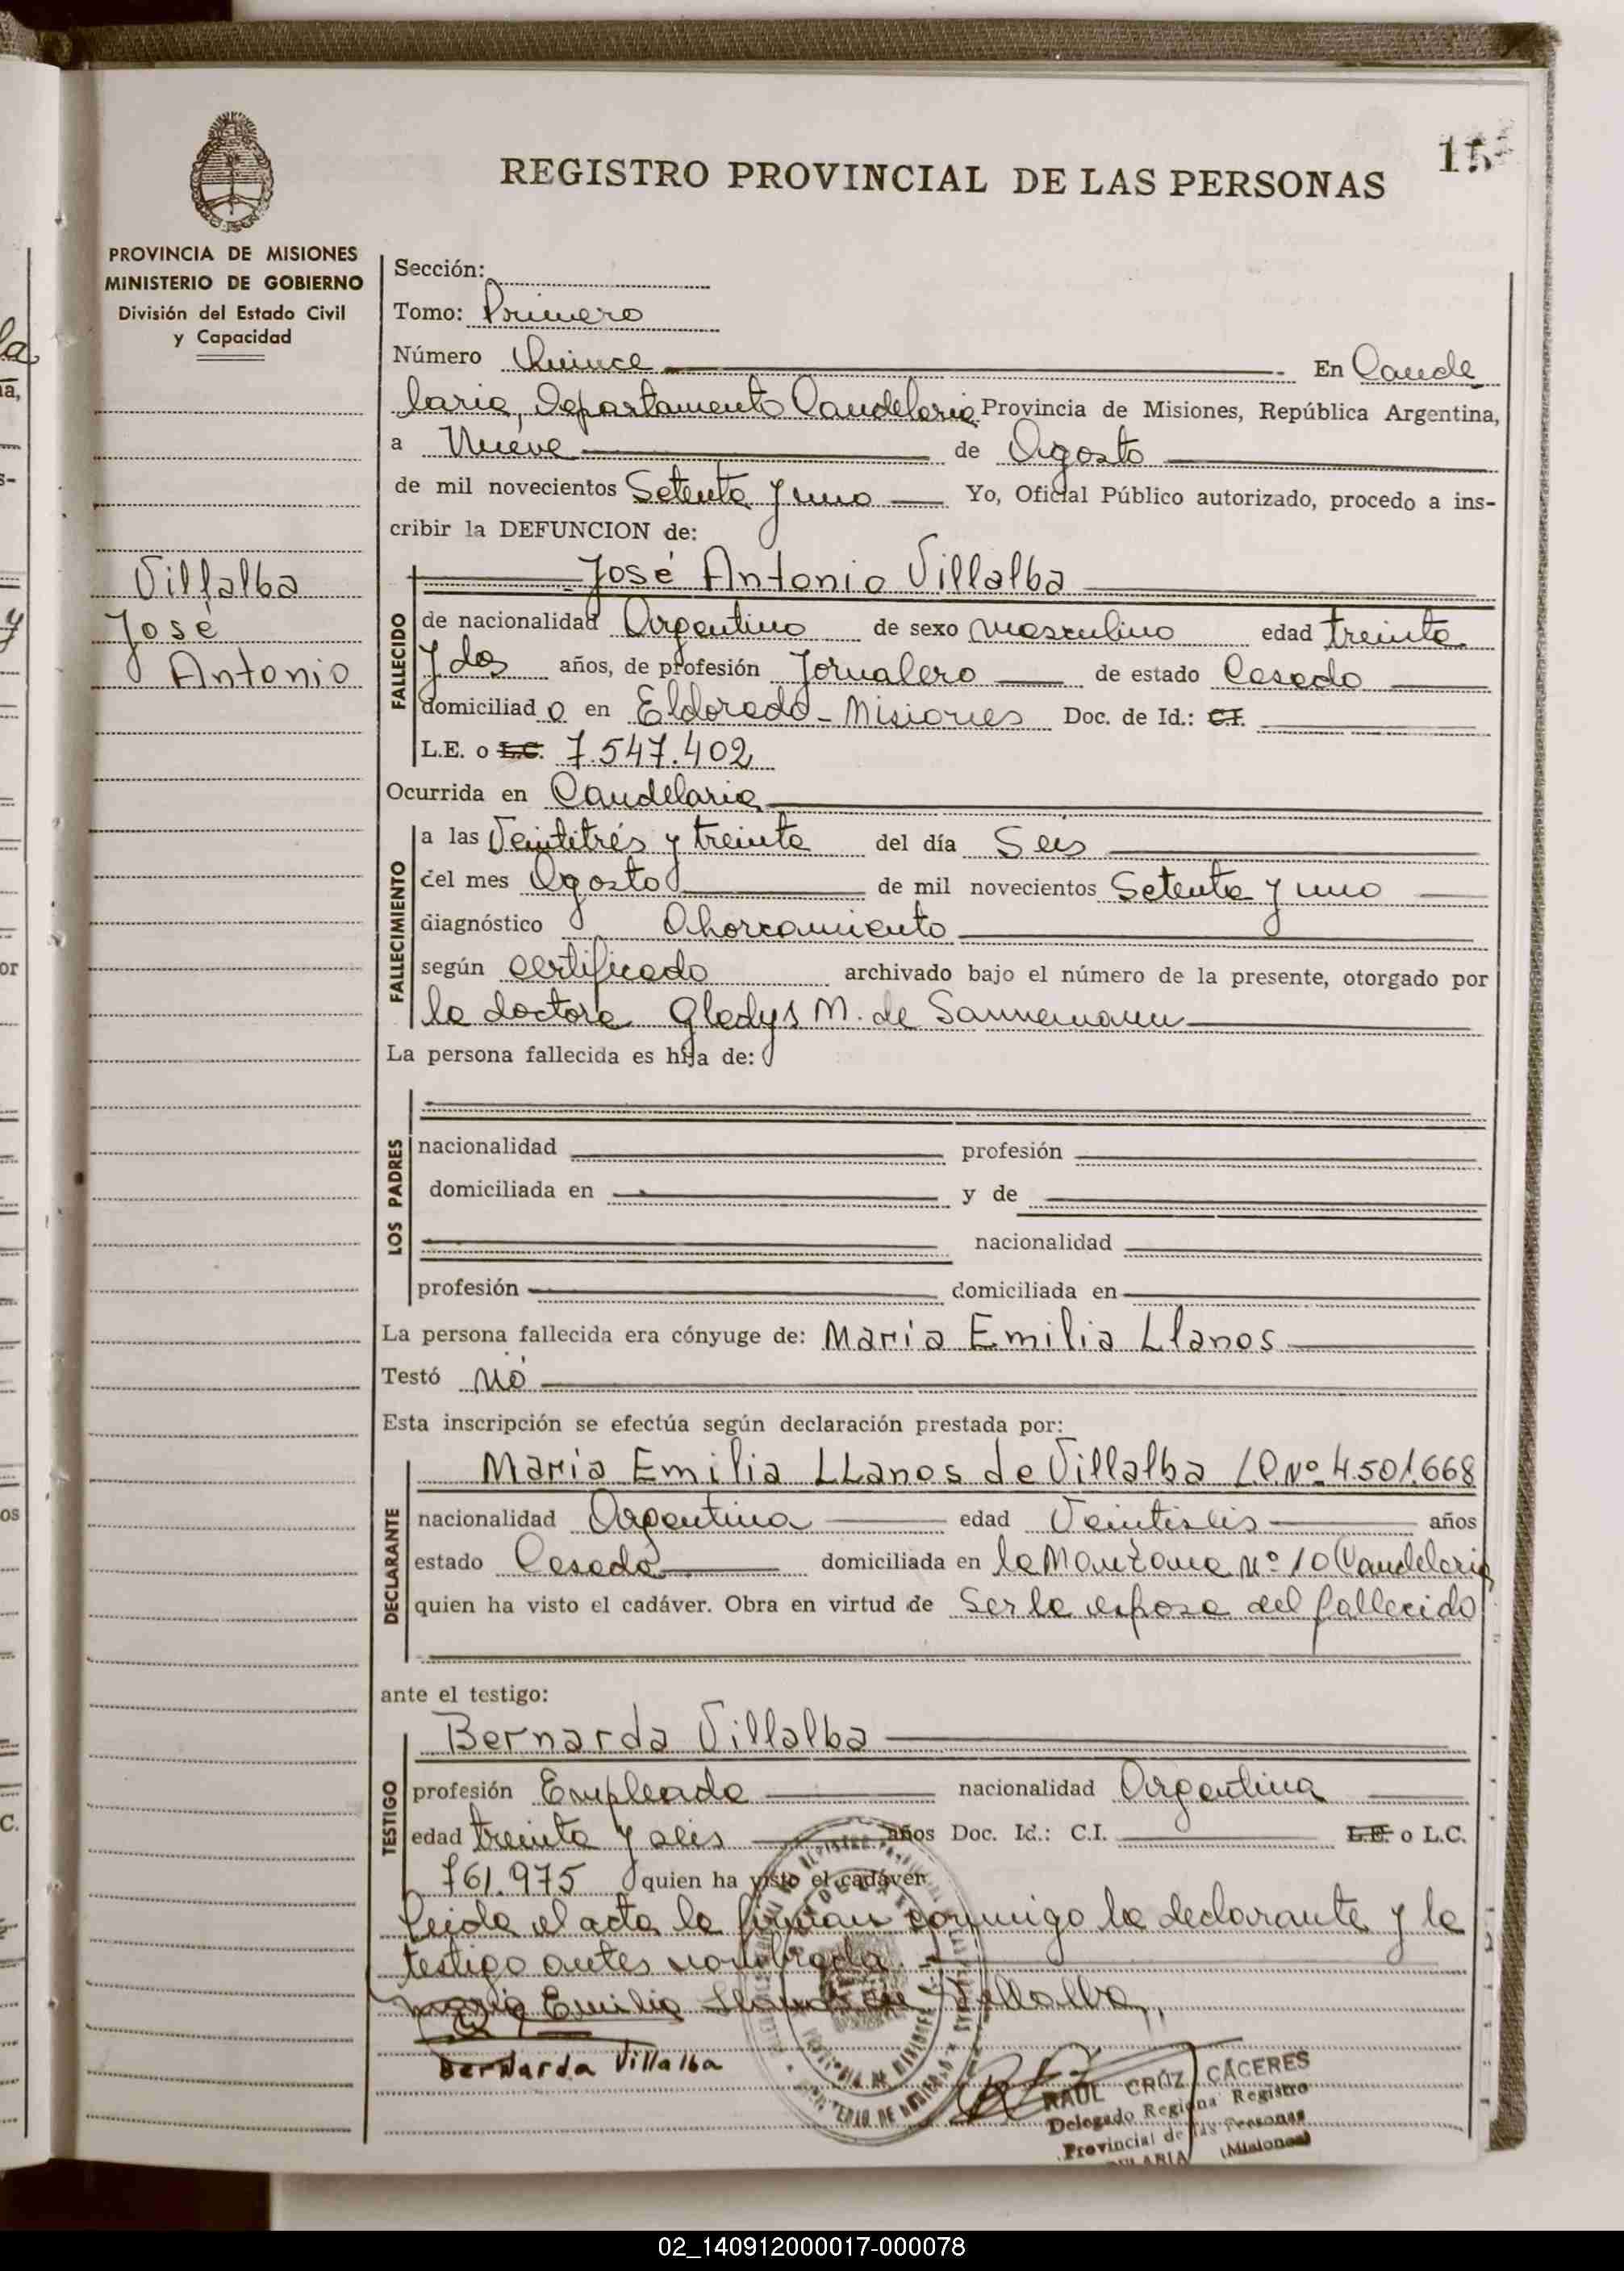 15
REGISTRO PROVINCIAL DE LAS PERSONAS
PROVINCIA DE MISIONES
MINISTERIO DE GOBIERNO
División del Estado Civil
y Capacidad
Villalba
José
Antonio
Sección:
Tomo: Primero
Número Quince En Cande
laria, Departamento Candelaria Provincia de Misiones, República Argentina,
a Nueve de Agosto
de mil novecientos Setenta y uno Yo, Oficial Público autorizado, procedo a ins-
cribir la DEFUNCION de:
José Antonio Villalba
FALLECIDO
de nacionalidad Argentino de sexo masculino edad treinta
y dos años, de profesión Jornalero de estado Casado
domiciliad o en Eldorado - Misiones Doc. de Id.: C.I.
L.E. o L.C. 7.547.402
Ocurrida en Candelaria
FALLECIMIENTO
a las Veintitrés y treinta del día Seis
del mes Agosto de mil novecientos Setenta y uno
diagnóstico Ahorcamiento
según certificado archivado bajo el número de la presente, otorgado por
la doctora Gladys M. de Sannemann
La persona fallecida es hija de:
LOS PADRES
nacionalidad profesión
domiciliada en y de
nacionalidad
profesión domiciliada en
La persona fallecida era cónyuge de: María Emilia Llanos
Testó no
Esta inscripción se efectúa según declaración prestada por:
DECLARANTE
María Emilia LLanos de Villalba L.C. Nº 4.501.668
nacionalidad Argentina edad Veintiseis años
estado Casada domiciliada en la Manzana Nº 10 Candelaria
quien ha visto el cadáver. Obra en virtud de Ser la esposa del fallecido
ante el testigo:
TESTIGO
Bernarda Villalba
profesión Empleada nacionalidad Argentina
edad treinta y seis años Doc. Id.: C.I. L.E. o L.C.
761.975 quien ha visto el cadáver
Leida el acta la firman conmigo la declarante y la
testigo antes nombrada.
maria Emilia Llanos de Villalba
Bernarda Villalba
RAUL CRUZ CACERES
Delegado Regional Registro
Provincial de las Personas
(Misiones)
02_140912000017-000078